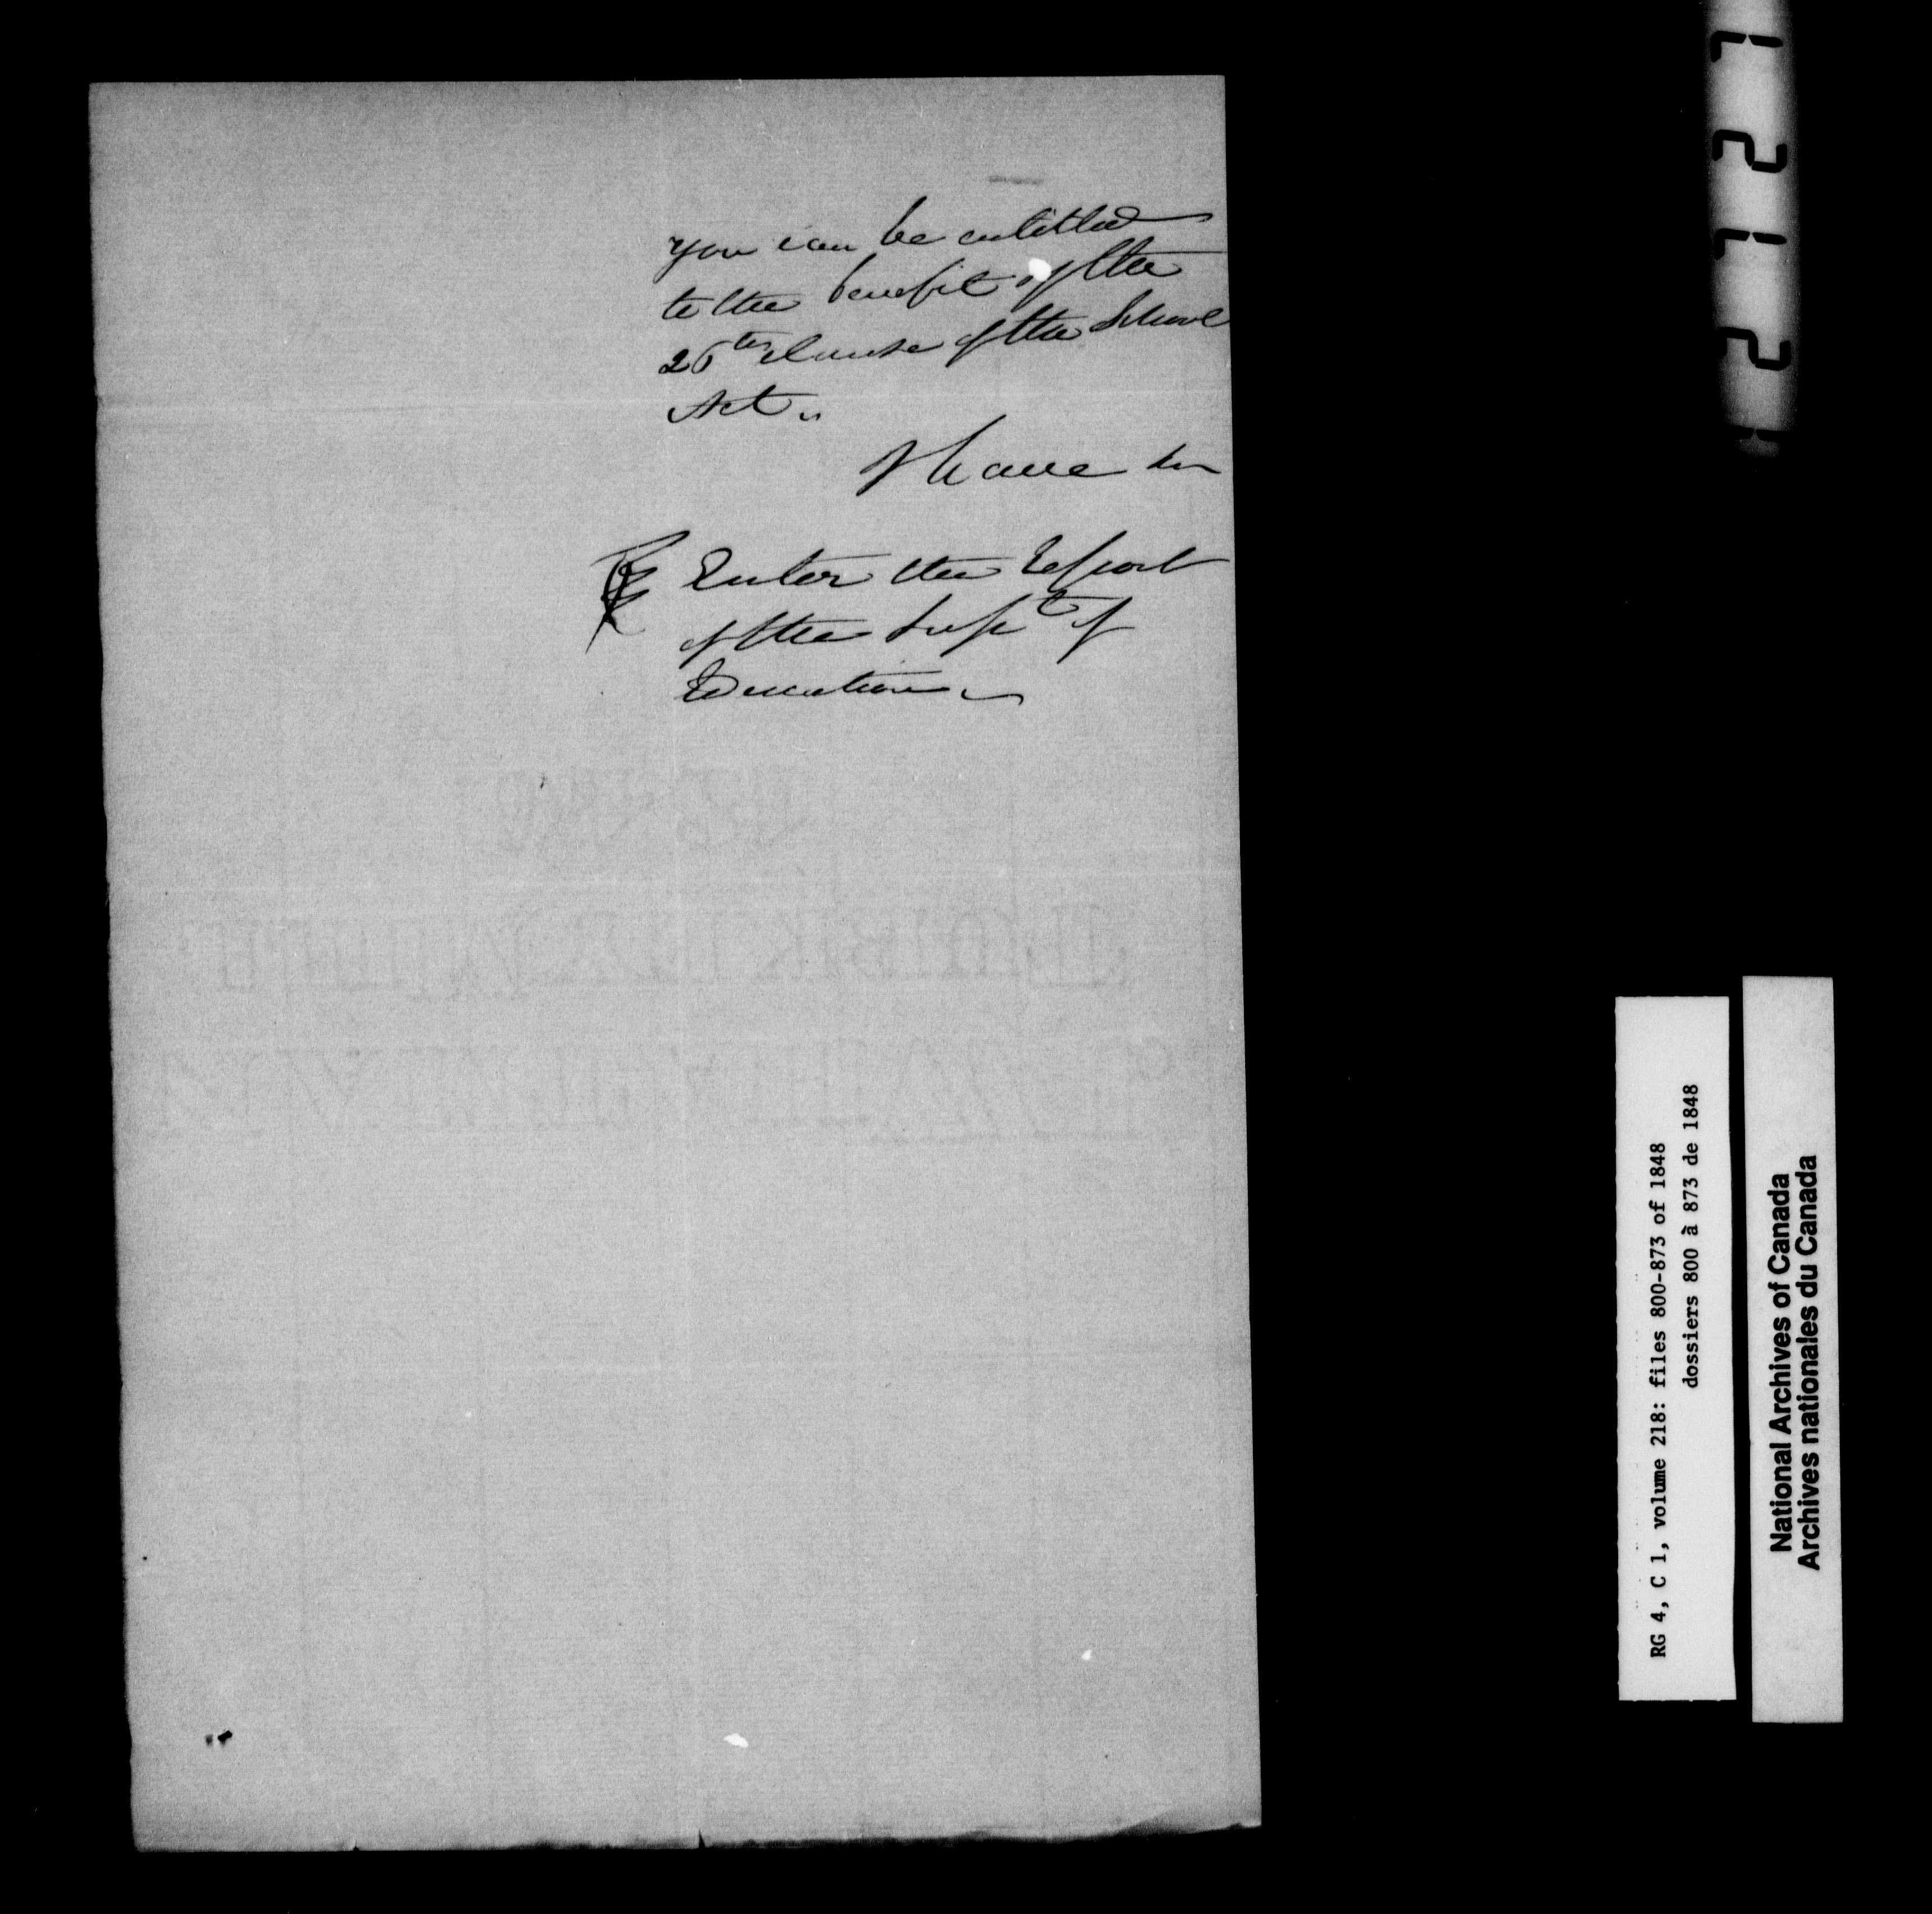 you can be entitled
to the benefit of the
26th Clause of the School
Act..
I have &c
Enter the Report
of the Supt of
Education
RG 4, C 1, volume 218: files 800-873 of 1848
dossiers 800 à 873 de 1848
National Archives of Canada
Archives nationales du Canada